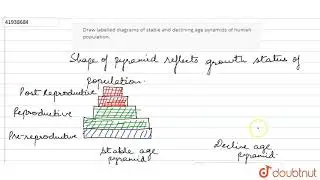 41938684
Draw labelled diagrams of stable and declining age pyramids of human
population.
Shape of pyramid reflects growth status of
population.
Post Reproductive
Reproductive
Pre-reproductive
Stable age
pyramid
Decline age
pyramid
doubtnut